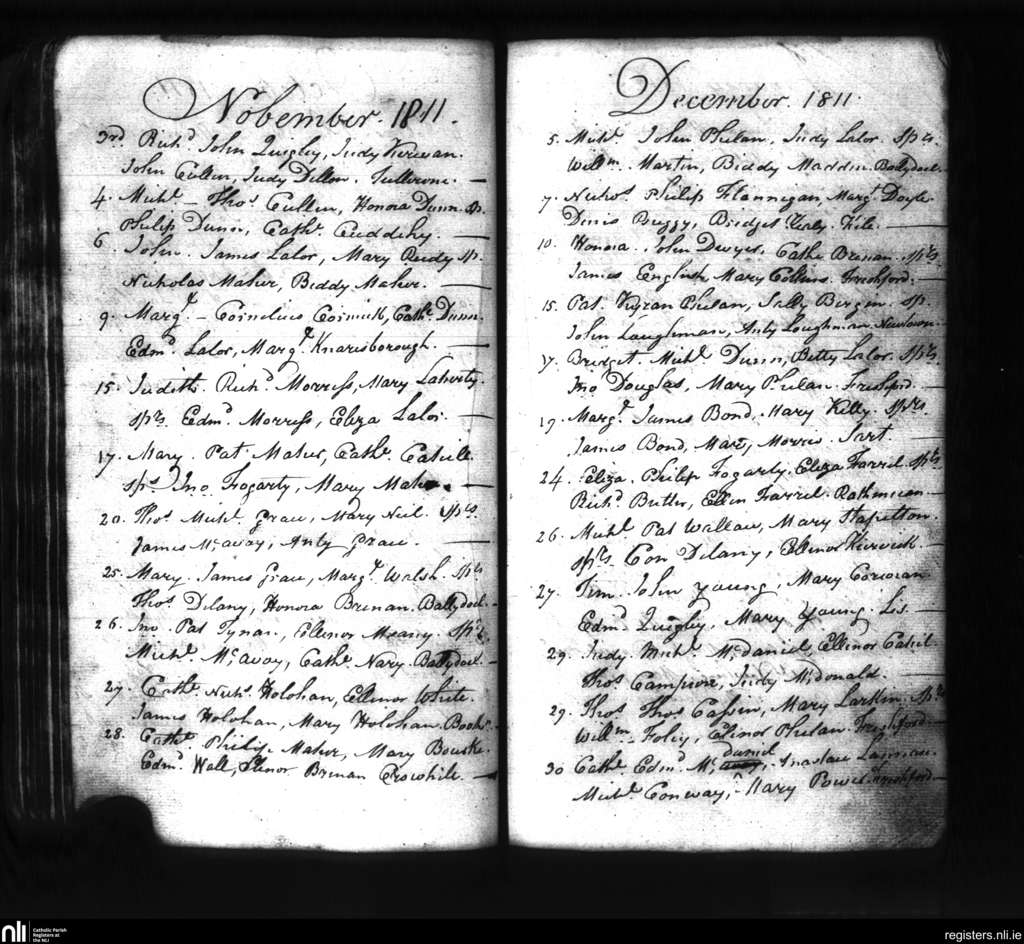 November. 1811.
3rd Richd John Quigley, Judy Kirwan.
John Cullin, Judy Dillon. Tulleroan.
4. Michl - Thos Cullin, Honora Dunn sp.
Philip Dunn, Cathe Cuddihy.
6. John. James Lalor, Mary sp
Nicholas Maher, Biddy Maher.
9. Margt - Cornelius Cormick, Cathe Dunn.
Edmd Lalor, Margt Knarisborough.
15. Judith. Richd Morress, Mary Laherty.
sprs Edmd Morress, Eliza Lalor.
17. Mary. Pat Maher, Cathe Cahill
sps Jno Fogarty, Mary Maher.
20. Thos Michl Grace, Mary Neil. sprs
James McAvoy, Anty Grace.
25. Mary. James Grace, Margt Walsh. sprs
Thos Delany, Honora Brenan. Ballydoel.
26. Jno. Pat Tynan, Ellenor Meany. sprs
Michl McAvoy, Cathe Nary. Ballydoel.
27. Cathe Nichs Holohan, Ellenor White.
James Holohan, Mary Holohan.
28. Cathe Philip Maher, Mary Bourke.
Edmd Wall, Elinor Brenan Crowhill.
December. 1811.
5. Michl John Phelan, Judy Lalor. sprs
Willm Martin, Biddy Madden Ballydoel.
7. Nichos Philip Flannigan, Margt Doyle
Denis Preggy, Bridget
10. Honora. John Dwyer, Cathe Brenan. sprs
James English, Mary Collins. Freshford.
15. Pat. Kyran Phelan, Sally Bergin. sp.
John Laughman, Anty Loughman
17. Bridget. Michl Dunn, Betty Lalor. sprs
Jno Douglas, Mary Phelan. Freshford.
19. Margt James Bond, Mary Kelly. sprs.
James Bond, Mary Morris. Sart.
24. Eliza. Philip Fogarty, Eliza Farrel. sprs
Richd Butler, Ellen Farrel. Rathmican
26. Michl Pat Wallace, Mary Stapelton.
sprs Con Delany, Ellenor Kervick.
27. Tim. John Young, Mary Corcoran
Edmd Quigley, Mary Young. Lis.
29. Judy. Michl McDaniel, Ellinor Cahil
Thos Campion, Judy McDonald.
29. Thos Thos Cassin, Mary Larkin. sprs
Willm Foley, Elinor Phelan. Freshford
30 Cathe Edmd Mc daniel, Anastace
Michl Conway, Mary Power. Freshford
nli Catholic Parish
Registers at
the NLI
registers.nli.ie